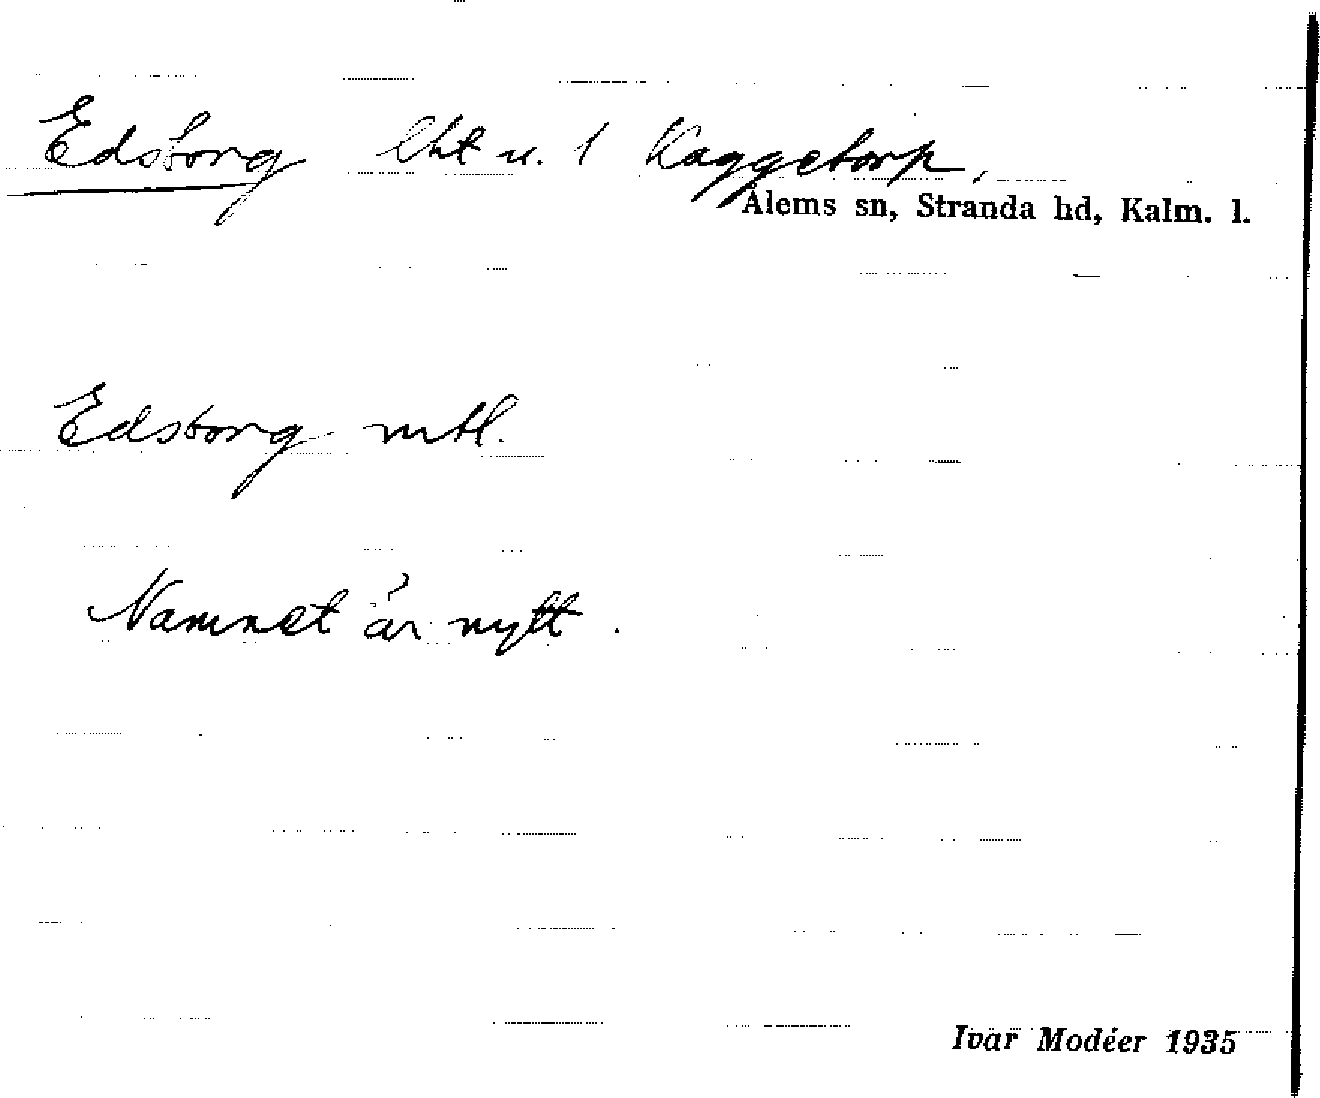 Edsborg lht u. 1 Kaggetorp,
Ålems sn, Stranda hd, Kalm. l.
Edsborg mtl.
Namnet är nytt.
Ivar Modéer 1935